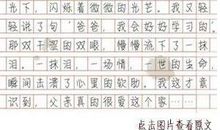 光下，闪烁着微微的光芒。我又轻
轻说了句“爸爸，我会好好学习的。
那双干涩的双眼，慢慢流下了一抹
泪。一抹泪，一场情，一世的生命，
瞬间击溃了心里的软肋。我这才意
识到，父亲真的很爱这个家……
点击图片查看原文